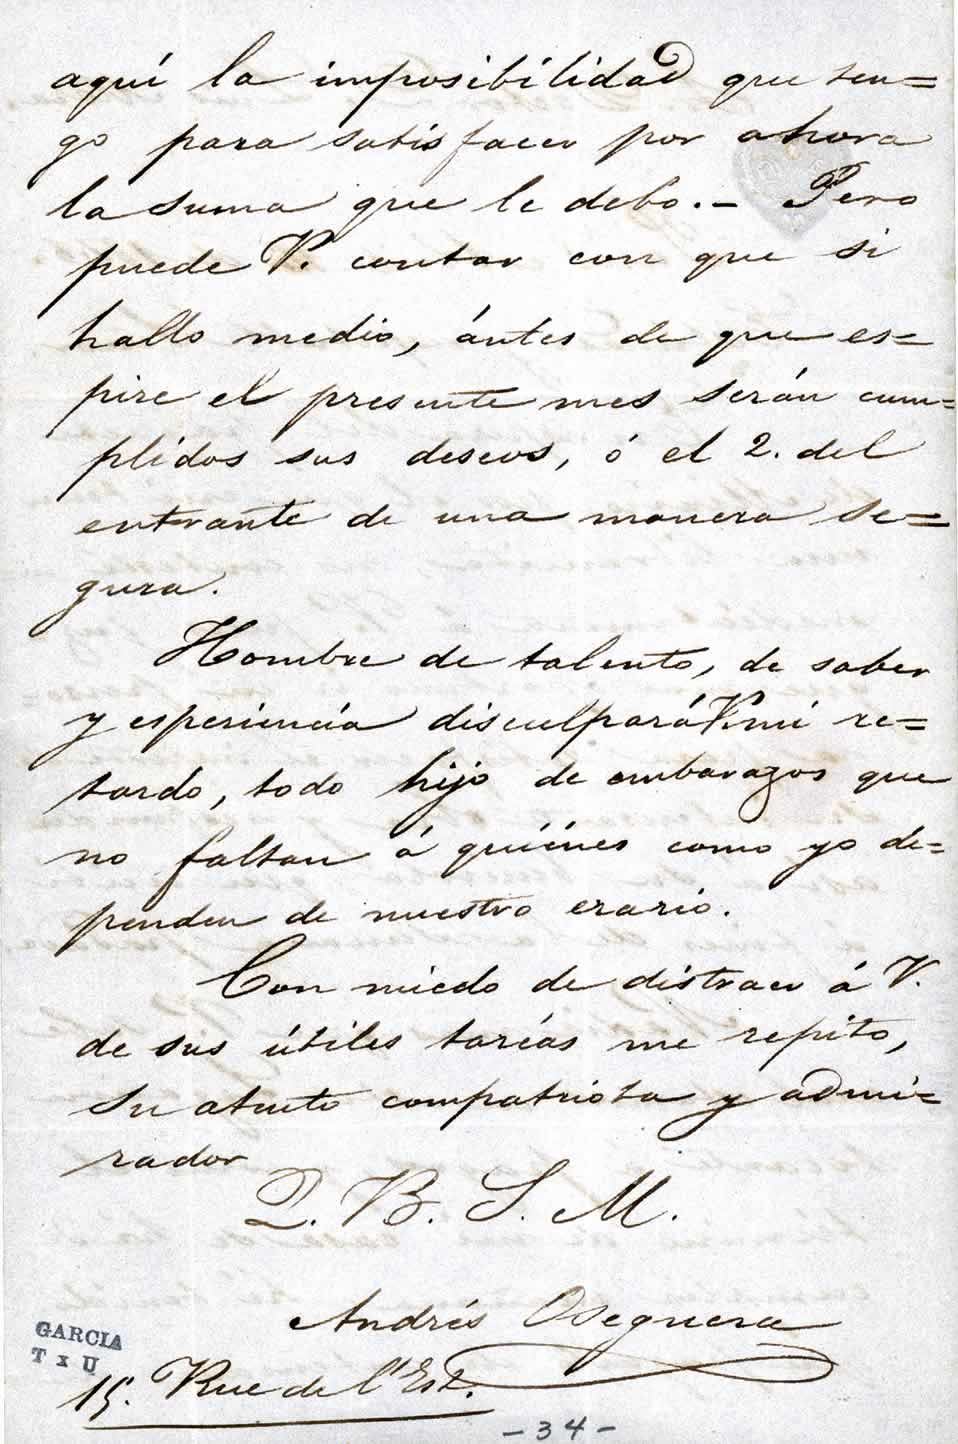 aquí la imposibilidad que ten=
go para satisfacer por ahora
la suma que le debo.— Pero
puede V. contar con que si
hallo medio, ántes de que es=
pire el presente mes serán cum=
plidos sus deseos, ó el 2. del
entrante de una manera se=
gura.
Hombre de talento, de saber
y esperiencia disculpará V. mi re=
tardo, todo hijo de embarazos que
no faltan á quiénes como yo de=
penden de nuestro erario.
Con miedo de distraer á V.
de sus útiles taréas me repito,
su atento compatriota y admi=
rador
Q. B. S. M.
Andrés Oseguera
GARCIA
T x U
15. Rue de l'Est.
-34-